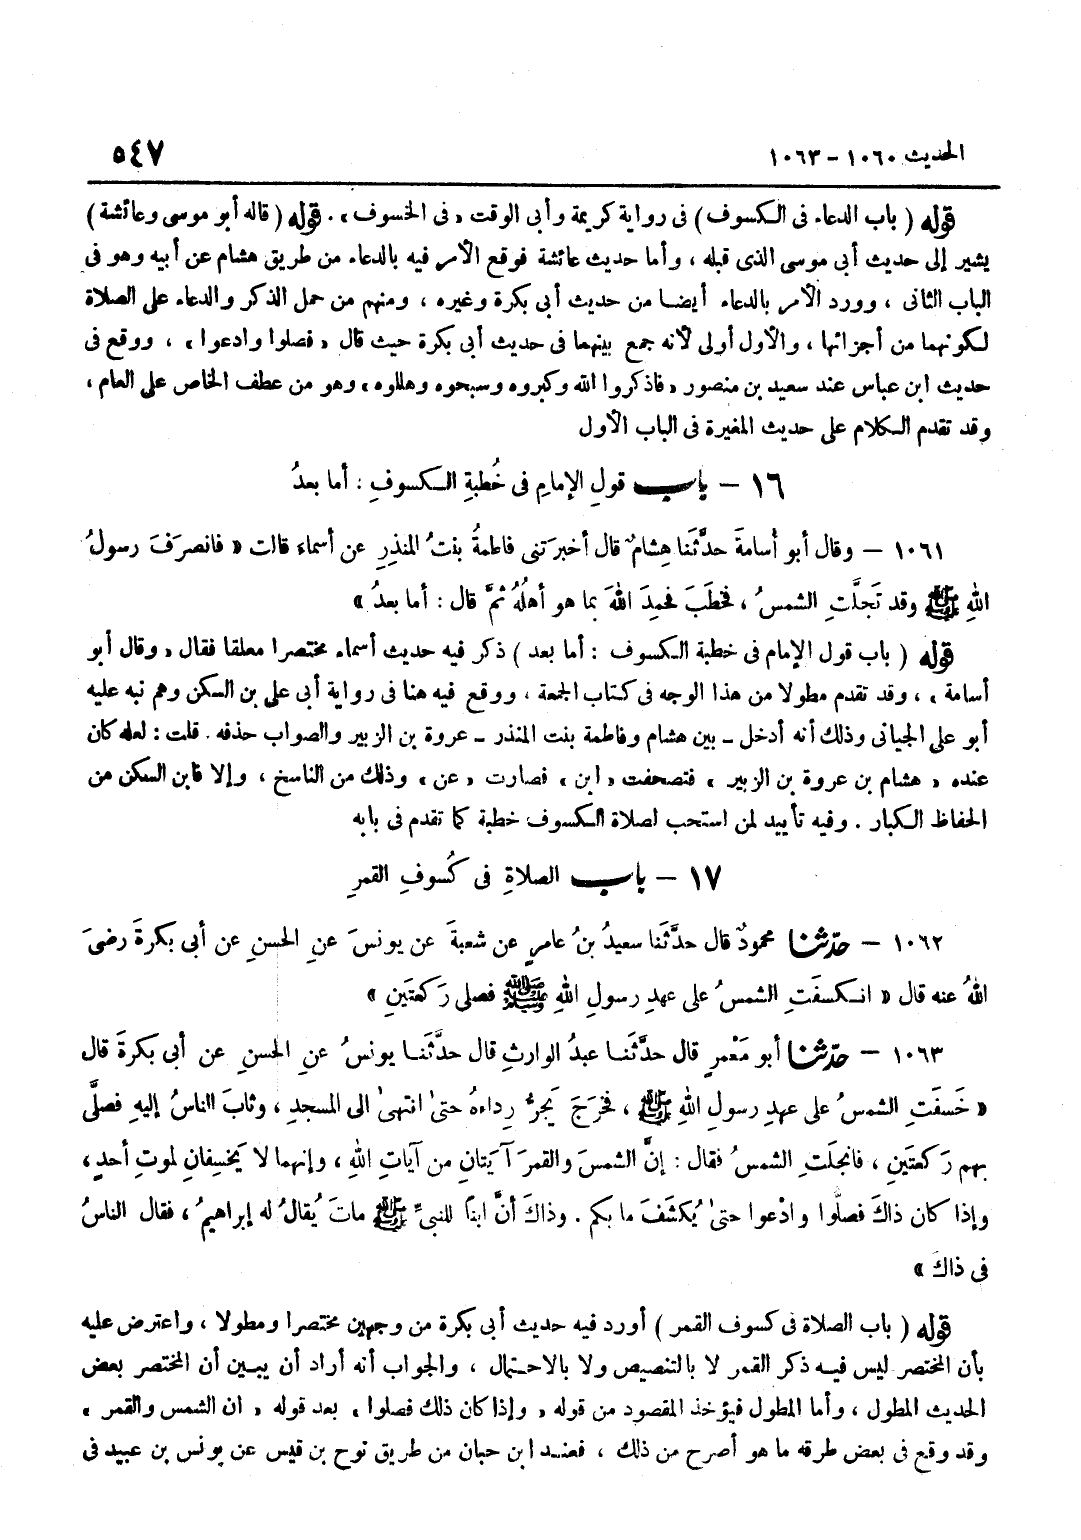 الحديث ١٠٦٠ - ١٠٦٣
٥٤٧
قوله ( باب الدعاء فى الكسوف ) فى رواية كريمة وأبى الوقت « فى الخسوف » . قوله ( قاله أبو موسى وعائشة )
يشير إلى حديث أبى موسى الذى قبله ، وأما حديث عائشة فوقع الأمر فيه بالدعاء من طريق هشام عن أبيه وهو فى
الباب الثانى ، وورد الأمر بالدعاء أيضا من حديث أبى بكرة وغيره ، ومنهم من حمل الذكر والدعاء على الصلاة
لكونهما من أجزائها ، والأول أولى لأنه جمع بينهما فى حديث أبى بكرة حيث قال « فصلوا وادعوا » ، ووقع فى
حديث ابن عباس عند سعيد بن منصور « فاذكروا الله وكبروه وسبحوه وهللوه » وهو من عطف الخاص على العام ،
وقد تقدم الكلام على حديث المغيرة فى الباب الأول
١٦ - باب قولِ الإمامِ فى خُطبةِ الكسوفِ : أما بعدُ
١٠٦١ - وقال أبو أسامةَ حدَّثَنا هِشامٌ قال أخبرَتنى فاطمةُ بنتُ المنذِرِ عن أسماء قالت « فانصرَفَ رسولُ
اللهِ ﷺ وقد تَجلَّتِ الشمسُ ، فخطَبَ فحمِدَ اللهَ بما هو أهلُهُ ثمَّ قال : أما بعدُ »
قوله ( باب قول الإمام فى خطبة الكسوف : أما بعد ) ذكر فيه حديث أسماء مختصرا معلقا فقال « وقال أبو
أسامة » ، وقد تقدم مطولا من هذا الوجه فى كتاب الجمعة ، ووقع فيه هنا فى رواية أبى على بن السكن وهم نبه عليه
أبو على الجيانى وذلك أنه أدخل - بين هشام وفاطمة بنت المنذر - عروة بن الزبير والصواب حذفه . قلت : لعله كان
عنده « هشام بن عروة بن الزبير » فتصحفت « ابن » فصارت « عن » وذلك من الناسخ ، وإلا فابن السكن من
الحفاظ الكبار . وفيه تأييد لمن استحب لصلاة الكسوف خطبة كما تقدم فى بابه
١٧ - باب الصلاةِ فى كُسوفِ القمرِ
١٠٦٢ - حدّثنا محمودٌ قال حدَّثَنا سعيدُ بنُ عامرٍ عن شعبةَ عن يونسَ عنِ الحسنِ عن أبى بكرةَ رضىَ
اللهُ عنه قال « انكسفَتِ الشمسُ على عهدِ رسولِ اللهِ ﷺ فصلى رَكعتَينِ »
١٠٦٣ - حدّثنا أبو مَعْمرٍ قال حدَّثَنا عبدُ الوارثِ قال حدَّثَنا يونسُ عنِ الحسنِ عن أبى بكرةَ قال
« خَسفَتِ الشمسُ على عهدِ رسولِ اللهِ ﷺ ، فخرَجَ يَجرُّ رِداءهُ حتى انتهىٰ الى المسجدِ ، وثابَ الناسُ إليهِ فصلَّى
بهم رَكعتَينِ ، فانجلَتِ الشمسُ فقال : إنَّ الشمسَ والقمرَ آيَتانِ من آياتِ اللهِ ، وإنهما لا يَخسِفانِ لموتِ أحدٍ ،
وإذا كان ذاكَ فصلُّوا وادْعوا حتىٰ يُكشَفَ ما بكم . وذاكَ أنَّ ابناً للنبىِّ ﷺ ماتَ يُقالُ له إبراهيمُ ، فقال الناسُ
فى ذاكَ »
قوله ( باب الصلاة فى كسوف القمر ) أورد فيه حديث أبى بكرة من وجهين مختصرا ومطولا ، واعترض عليه
بأن المختصر ليس فيه ذكر القمر لا بالتنصيص ولا بالاحتمال ، والجواب أنه أراد أن يبين أن المختصر بعض
الحديث المطول ، وأما المطول فيؤخذ المقصود من قوله « وإذا كان ذلك فصلوا » بعد قوله « ان الشمس والقمر »
وقد وقع فى بعض طرقه ما هو أصرح من ذلك ، فعند ابن حبان من طريق نوح بن قيس عن يونس بن عبيد فى